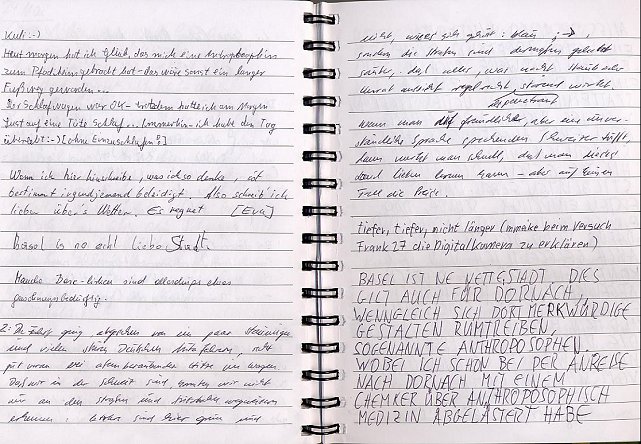 Kuli :-)
Heut morgen hat ich Glück, das mich eine
zum gebracht hat - das wäre sonst ein langer
Fußweg geworden...
Der Schlafwagen war OK - trotzdem hatte ich am Morgen
Lust auf eine Tüte Schlaf... Immerhin - ich habe den Tag
überlebt :-) [ohne Einzuschlafen!]
Wenn ich hier hinschreibe, was ich so denke, ist
bestimmt irgendjemand beleidigt. Also schreib' ich
lieber über's Wetter. Es regnet [Eva]
Basel is ne echt liebe Stadt.
Manche Base-linken sind allerdings etwas
2. Die Fahrt ging abgesehen von ein paar
und vielen
gut voran bei Hitze im wagen.
Daß wir in der schweiz sind konnten wir nicht
nur an den straßen und
erkennen: letztere sind hier grün und
nicht, wie es sich gehört: blau ;-),
sondern die Straßen sind dermaßen geleckt
sauber, daß alles, was nicht
unrat aussieht regelrecht störend wirkt.
wenn man auf freundliche, aber eine unver-
ständliche Sprache sprechenden Schweizer trifft,
dann merkt man schnell, daß man dieses
Land lieben lernen kann - aber auf keinen
Fall die Preise.
tiefer, tiefer, nicht länger (mmaike beim Versuch
Frank 27 die Digitalkamera zu erklären)
BASEL IST NE NETTE STADT DIES
GILT AUCH FÜR DORNACH,
WENNGLEICH SICH DORT MERKWÜRDIGE
GESTALTEN RUMTREIBEN,
SOGENANNTE ANTHROPOSOPHEN.
WOBEI ICH SCHON BEI DER ANREISE
NACH DORNACH MIT EINEM
CHEMIKER ÜBER ANTHROPOSOPHISCH
MEDIZIN ABGELÄSTERT HABE